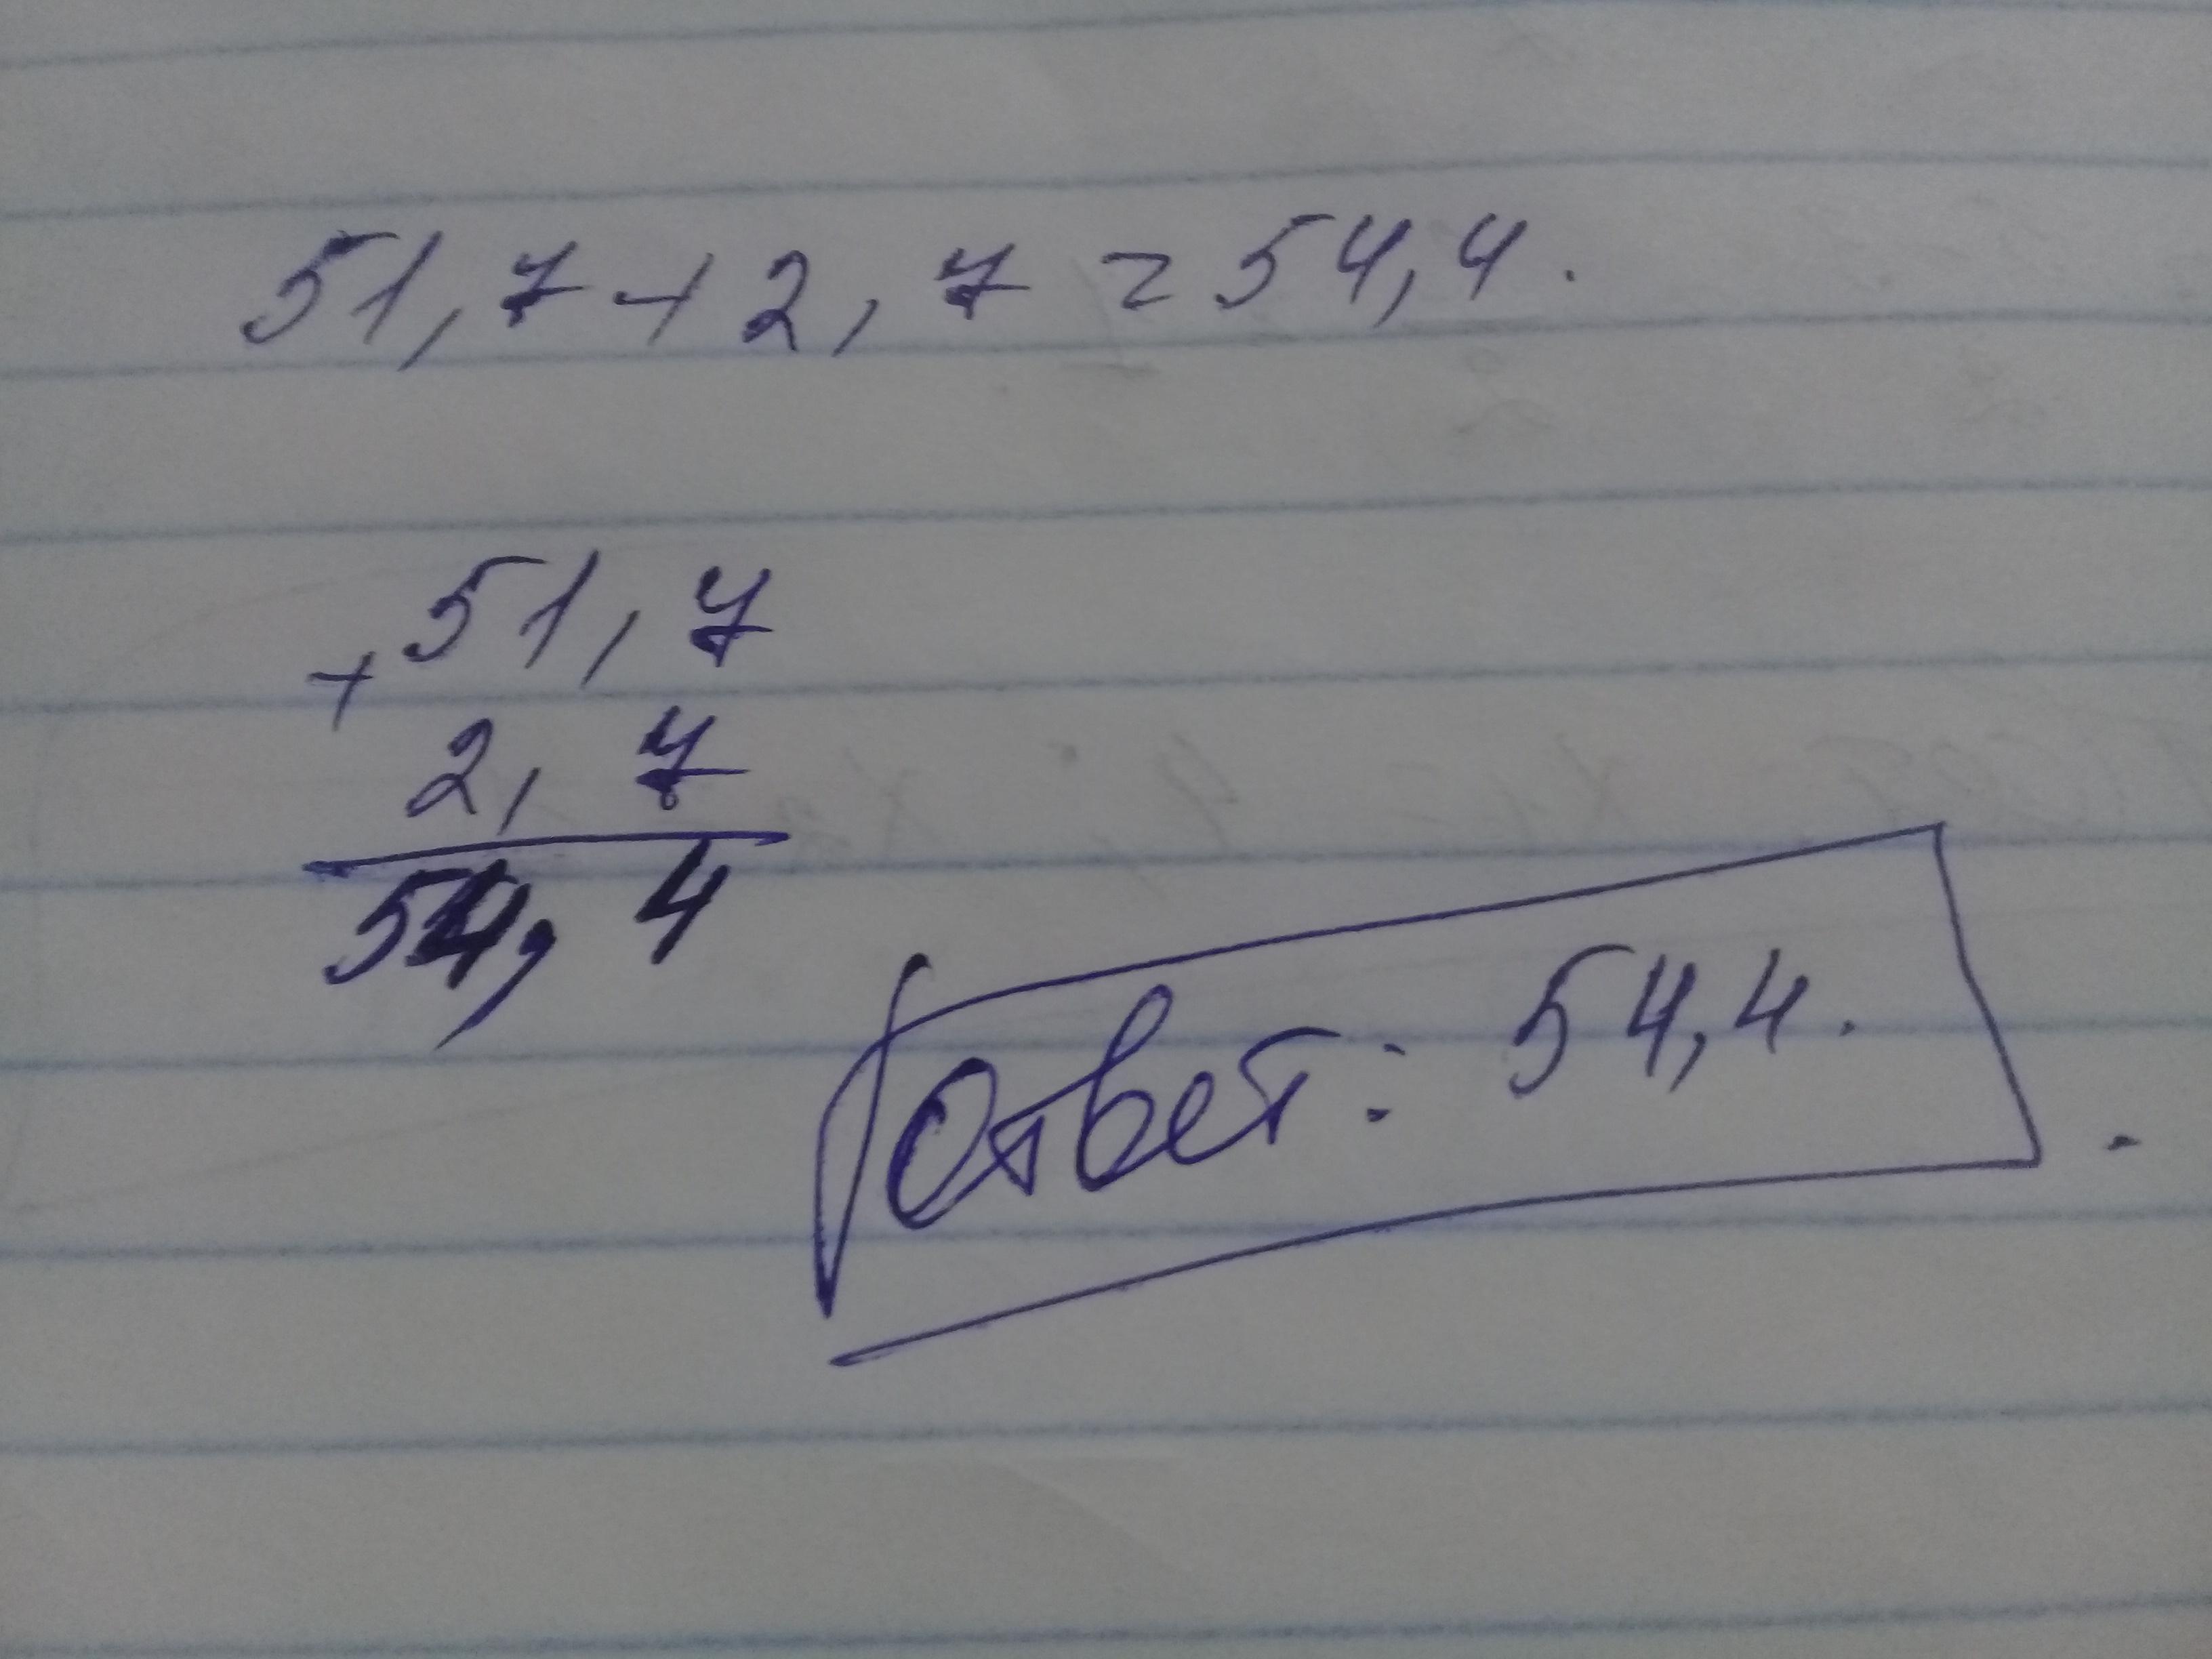 51,7+2,7=54,4.
51,7
+
2,7
54,4
Ответ: 54,4.